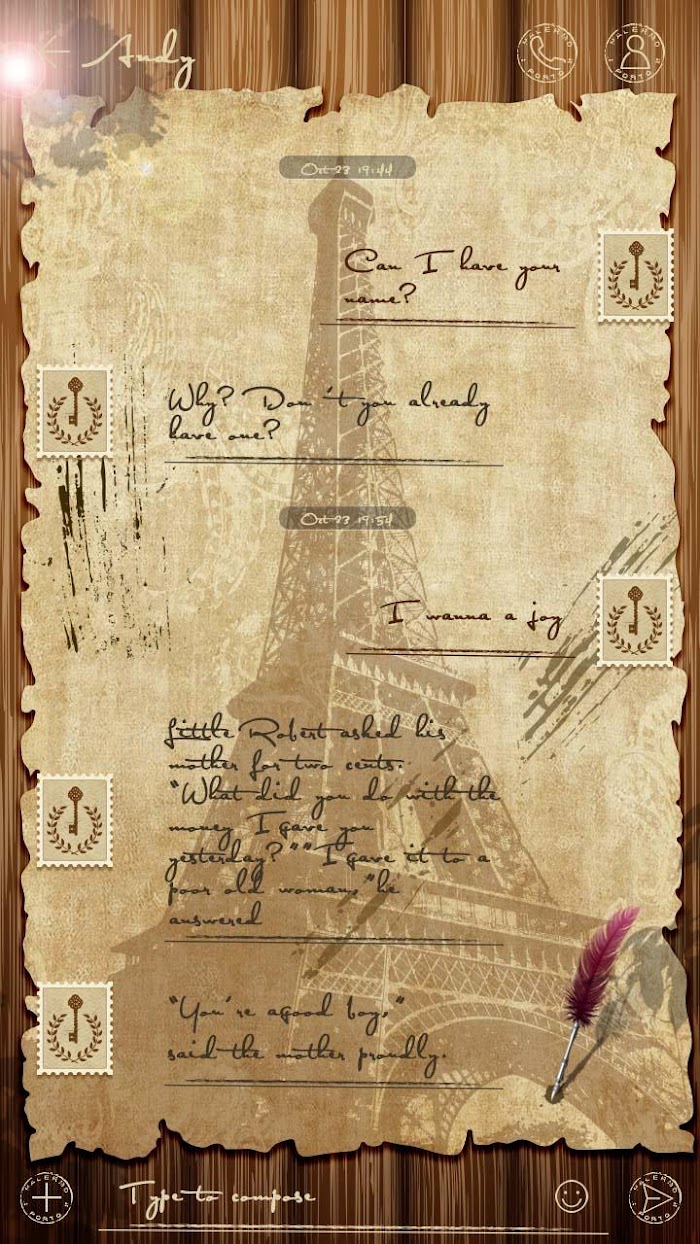 Andy
PALERMO
PORTO
PALERMO
PORTO
Oct 23 19:44
Can I have your
name?
Why? Don't you already
have one?
Oct 23 19:54
I wanna a joy
little Robert asked his
mother for two cents.
"What did you do with the
money I gave you
yesterday?""I gave it to a
poor old woman,"he
answered
"You're agood boy,"
said the mother proudly.
PALERMO
PORTO
Type to compose
PALERMO
PORTO